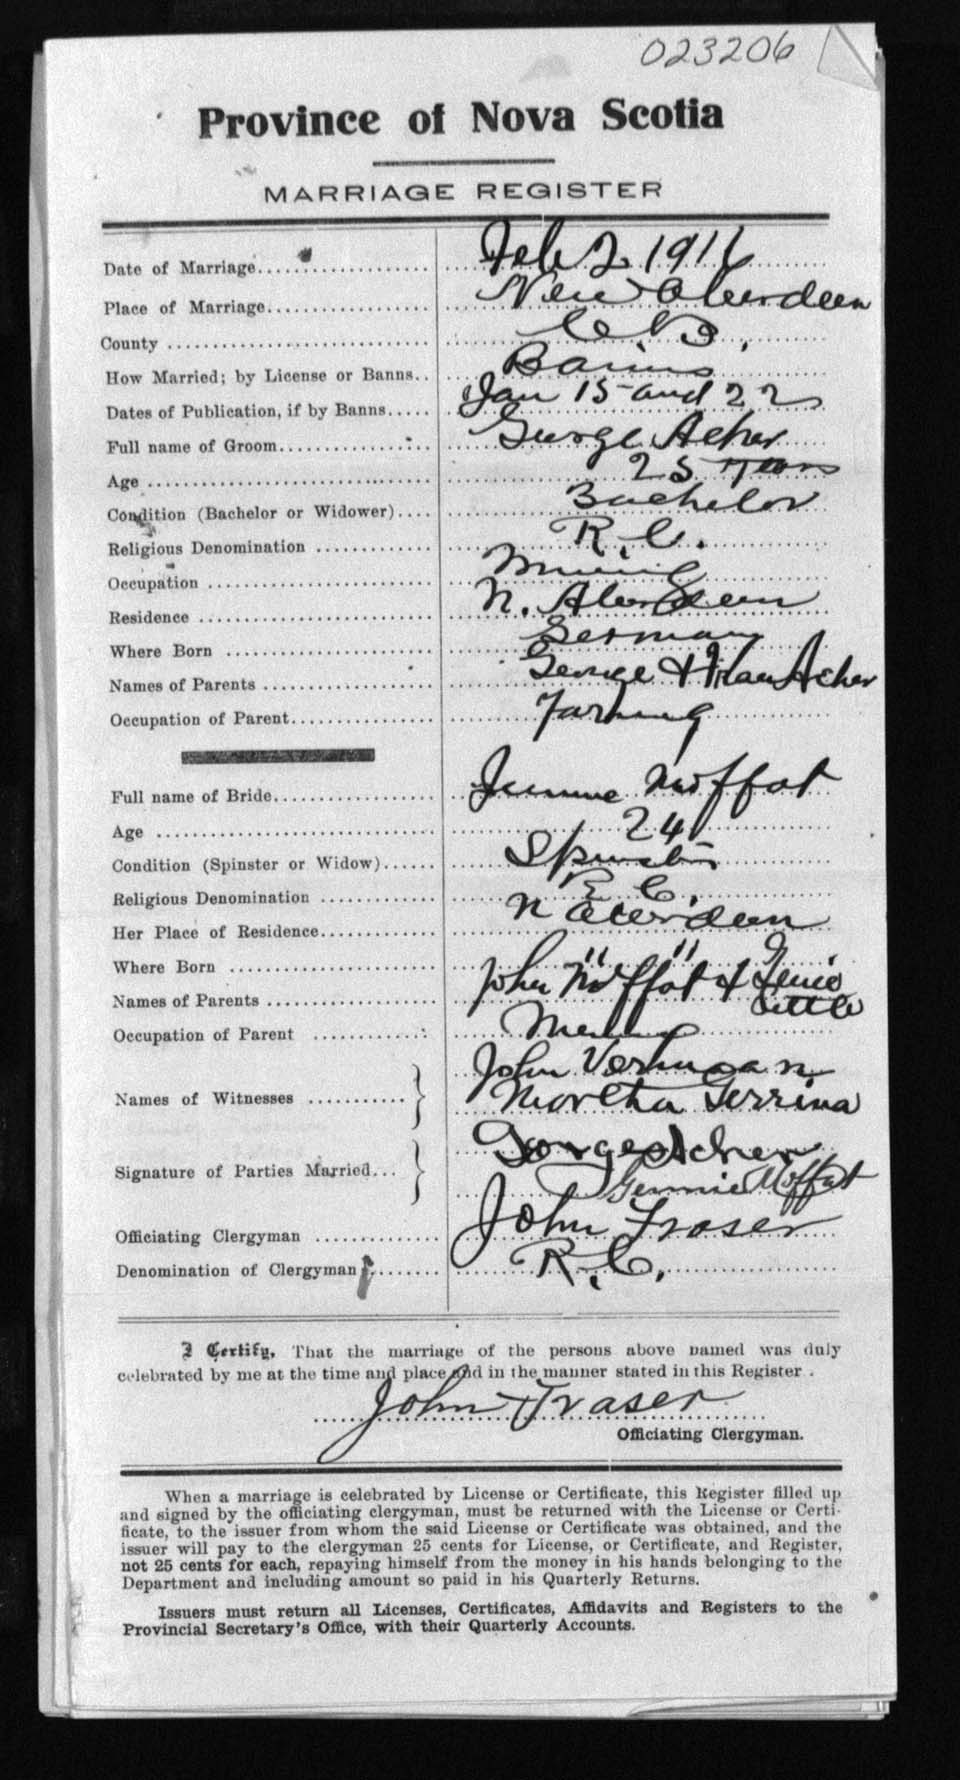 023206
Province of Nova Scotia
MARRIAGE REGISTER
Date of Marriage Feb 2 1916
Place of Marriage New Aberdeen
County C.B.
How Married; by License or Banns Banns
Dates of Publication, if by Banns Jan 15 and 22
Full name of Groom George Acher
Age 25 years
Condition (Bachelor or Widower) Bachelor
Religious Denomination R.C.
Occupation Mining
Residence N. Aberdeen
Where Born Germany
Names of Parents George & Acher
Occupation of Parent Farming
Full name of Bride Jennie Moffat
Age 24
Condition (Spinster or Widow) Spinster
Religious Denomination R.C.
Her Place of Residence N Aberdeen
Where Born " "
Names of Parents John Moffat &
Little
Occupation of Parent
John
Names of Witnesses Martha
George Acher
Signature of Parties Married
Gennie Moffat
Officiating Clergyman John Fraser
Denomination of Clergyman R.C.
I Certify, That the marriage of the persons above named was duly
celebrated by me at the time and place and in the manner stated in this Register.
John Fraser
Officiating Clergyman.
When a marriage is celebrated by License or Certificate, this Register filled up
and signed by the officiating clergyman, must be returned with the License or Certi-
ficate, to the issuer from whom the said License or Certificate was obtained, and the
issuer will pay to the clergyman 25 cents for License, or Certificate, and Register,
not 25 cents for each, repaying himself from the money in his hands belonging to the
Department and including amount so paid in his Quarterly Returns.
Issuers must return all Licenses, Certificates, Affidavits and Registers to the
Provincial Secretary's Office, with their Quarterly Accounts.